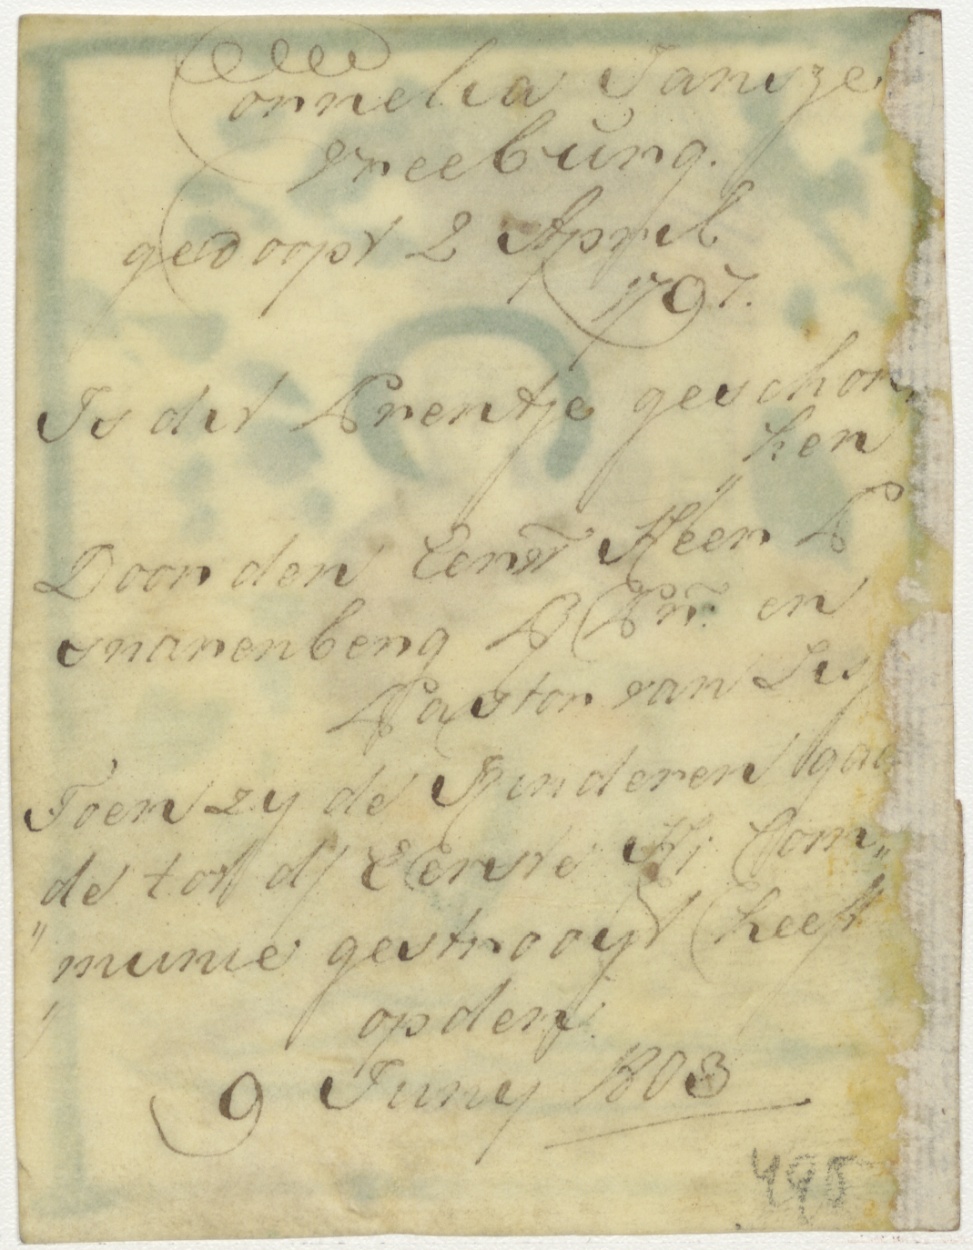 Cornelia Jansze
Vreeburg.
gedoopt 2 April
1797.
Is dit Prentje geschon
ken
Door den Eerw Heer P
Snarenberg P Pr. en
Pastor van Lis
Toen zy de Kinderen gaa
de tot d' Eerste H: Com„
„munie gestrooyt heeft
op den
9 Juny 1808
495